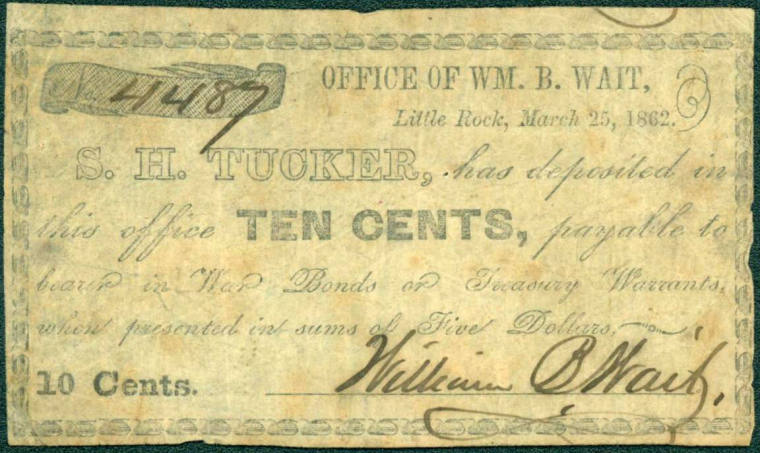 No. 4487
OFFICE OF WM. B. WAIT,
Little Rock, March 25, 1862.
S. H. TUCKER, has deposited in
this office TEN CENTS, payable to
bearer in War Bonds or Treasury Warrants,
when presented in sums of Five Dollars.
10 Cents. William B Wait.